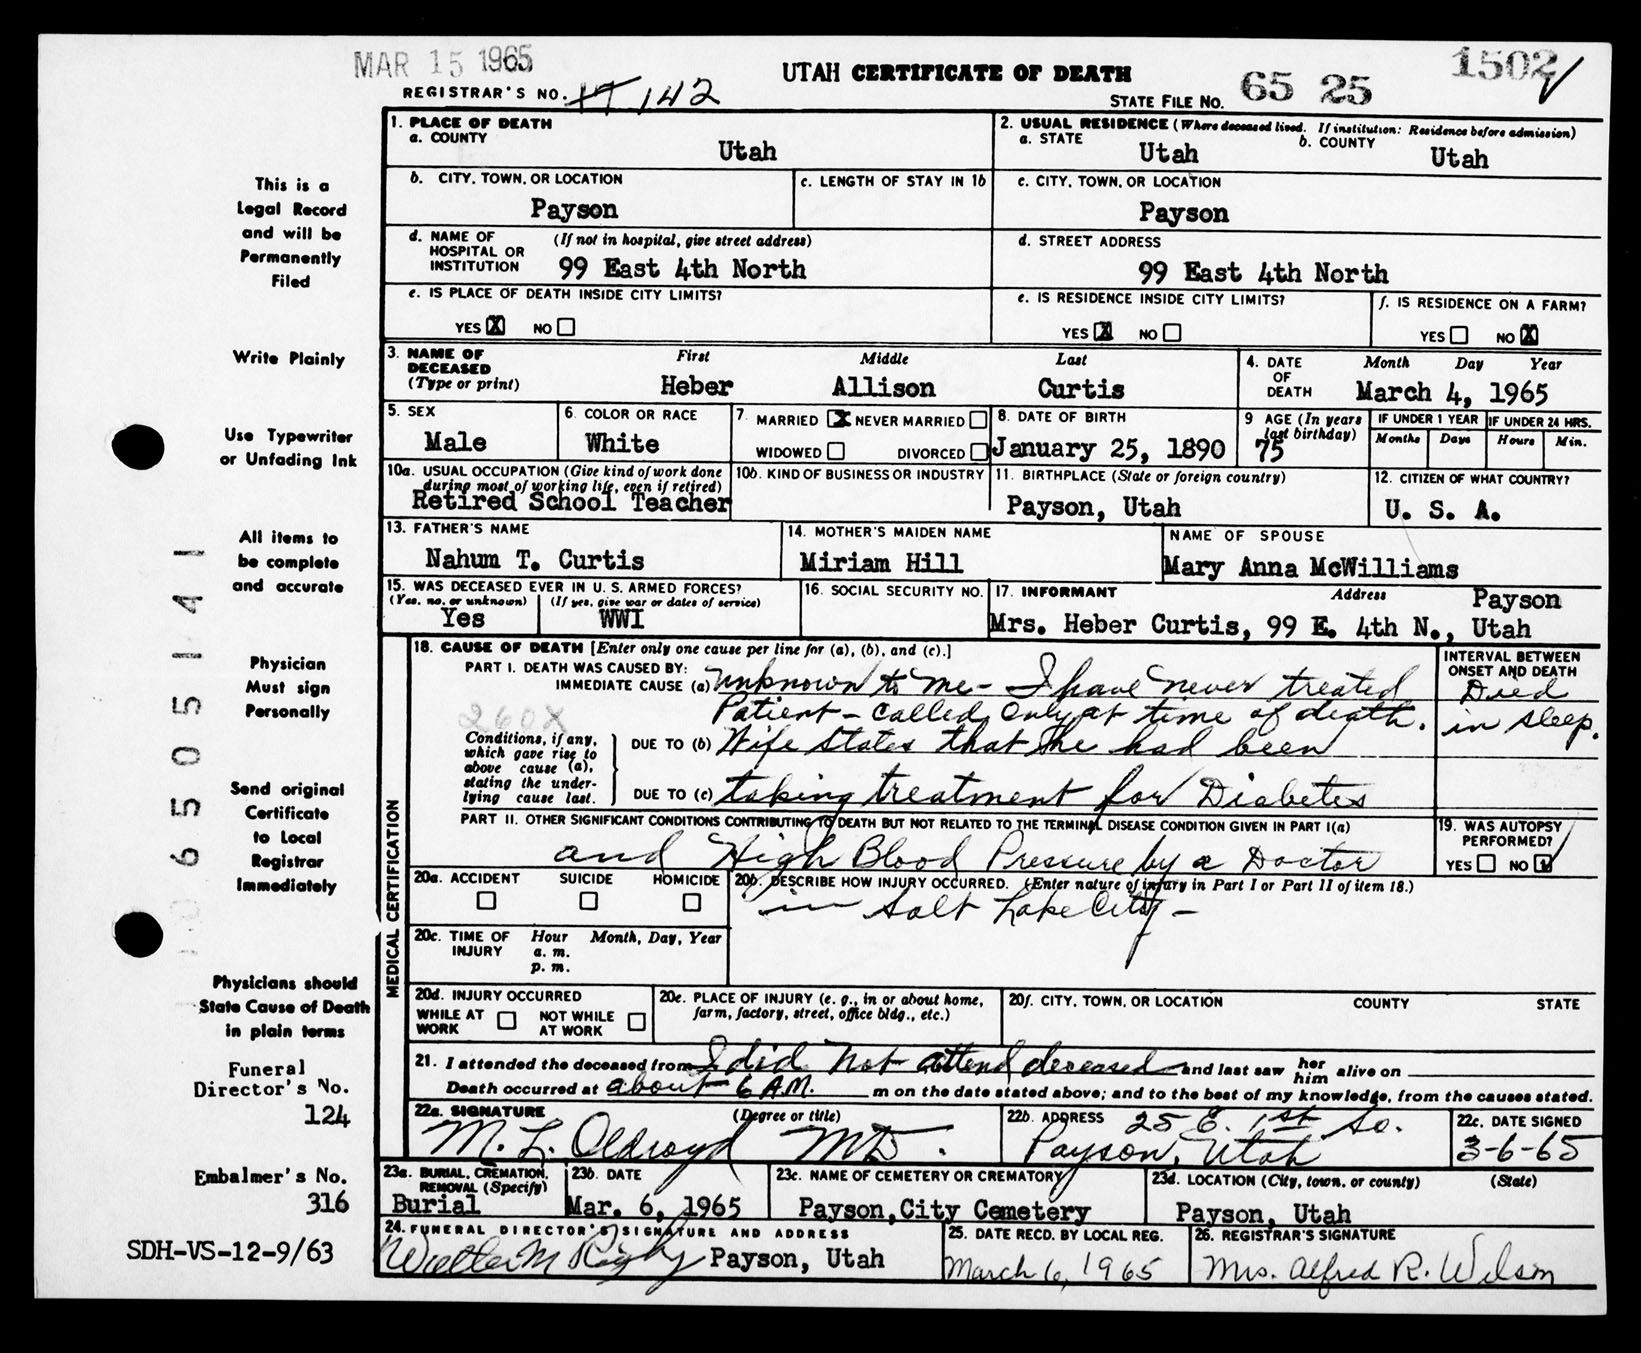 MAR 15 1965
1502
UTAH CERTIFICATE OF DEATH
REGISTRAR'S NO. 142
STATE FILE NO. 65 25
1. PLACE OF DEATH
a. COUNTY
Utah
2. USUAL RESIDENCE (Where deceased lived. If institution: Residence before admission)
a. STATE
Utah
b. COUNTY
Utah
b. CITY, TOWN, OR LOCATION
Payson
c. LENGTH OF STAY IN 1b
c. CITY, TOWN, OR LOCATION
Payson
d. NAME OF HOSPITAL OR INSTITUTION
(If not in hospital, give street address)
99 East 4th North
d. STREET ADDRESS
99 East 4th North
e. IS PLACE OF DEATH INSIDE CITY LIMITS?
YES X NO
e. IS RESIDENCE INSIDE CITY LIMITS?
YES X NO
f. IS RESIDENCE ON A FARM?
YES NO X
3. NAME OF DECEASED (Type or print)
First Middle Last
Heber Allison Curtis
4. DATE OF DEATH
Month Day Year
March 4, 1965
5. SEX
Male
6. COLOR OR RACE
White
7. MARRIED X NEVER MARRIED
WIDOWED DIVORCED
8. DATE OF BIRTH
January 25, 1890
9 AGE (In years last birthday)
75
IF UNDER 1 YEAR
Months Days
IF UNDER 24 HRS.
Hours Min.
10a. USUAL OCCUPATION (Give kind of work done during most of working life, even if retired)
Retired School Teacher
10b. KIND OF BUSINESS OR INDUSTRY
11. BIRTHPLACE (State or foreign country)
Payson, Utah
12. CITIZEN OF WHAT COUNTRY?
U. S. A.
13. FATHER'S NAME
Nahum T. Curtis
14. MOTHER'S MAIDEN NAME
Miriam Hill
NAME OF SPOUSE
Mary Anna McWilliams
15. WAS DECEASED EVER IN U. S. ARMED FORCES?
(Yes, no, or unknown)
Yes
(If yes, give war or dates of service)
WWI
16. SOCIAL SECURITY NO.
17. INFORMANT Address
Mrs. Heber Curtis, 99 E. 4th N., Payson Utah
MEDICAL CERTIFICATION
18. CAUSE OF DEATH [Enter only one cause per line for (a), (b), and (c).]
INTERVAL BETWEEN ONSET AND DEATH
PART I. DEATH WAS CAUSED BY:
IMMEDIATE CAUSE (a) Unknown to me - I have never treated
Died
260X
Patient - called only at time of death.
in sleep.
Conditions, if any, which gave rise to above cause (a), stating the underlying cause last.
DUE TO (b) Wife states that he had been
DUE TO (c) taking treatment for Diabetes
PART II. OTHER SIGNIFICANT CONDITIONS CONTRIBUTING TO DEATH BUT NOT RELATED TO THE TERMINAL DISEASE CONDITION GIVEN IN PART I(a)
and High Blood Pressure by a Doctor
19. WAS AUTOPSY PERFORMED?
YES NO
20a. ACCIDENT SUICIDE HOMICIDE
20b. DESCRIBE HOW INJURY OCCURRED. (Enter nature of injury in Part I or Part II of item 18.)
in Salt Lake City -
20c. TIME OF INJURY
Hour Month, Day, Year
a. m.
p. m.
20d. INJURY OCCURRED
WHILE AT WORK
NOT WHILE AT WORK
20e. PLACE OF INJURY (e. g., in or about home, farm, factory, street, office bldg., etc.)
20f. CITY, TOWN, OR LOCATION COUNTY STATE
21. I attended the deceased from I did not attend deceased and last saw her him alive on
Death occurred at about 6 A.M. m on the date stated above; and to the best of my knowledge, from the causes stated.
22a. SIGNATURE (Degree or title)
M. L. Oldroyd MD.
22b. ADDRESS 25 E. 1st So.
Payson, Utah
22c. DATE SIGNED
3-6-65
23a. BURIAL, CREMATION, REMOVAL (Specify)
Burial
23b. DATE
Mar. 6, 1965
23c. NAME OF CEMETERY OR CREMATORY
Payson, City Cemetery
23d. LOCATION (City, town, or county) (State)
Payson, Utah
24. FUNERAL DIRECTOR'S SIGNATURE AND ADDRESS
Payson, Utah
25. DATE RECD. BY LOCAL REG.
March 6, 1965
26. REGISTRAR'S SIGNATURE
Mrs. Alfred R. Wilson
This is a
Legal Record
and will be
Permanently
Filed
Write Plainly
Use Typewriter
or Unfading Ink
All items to
be complete
and accurate
Physician
Must sign
Personally
Send original
Certificate
to Local
Registrar
Immediately
Physicians should
State Cause of Death
in plain terms
Funeral
Director's No.
124
Embalmer's No.
316
SDH-VS-12-9/63